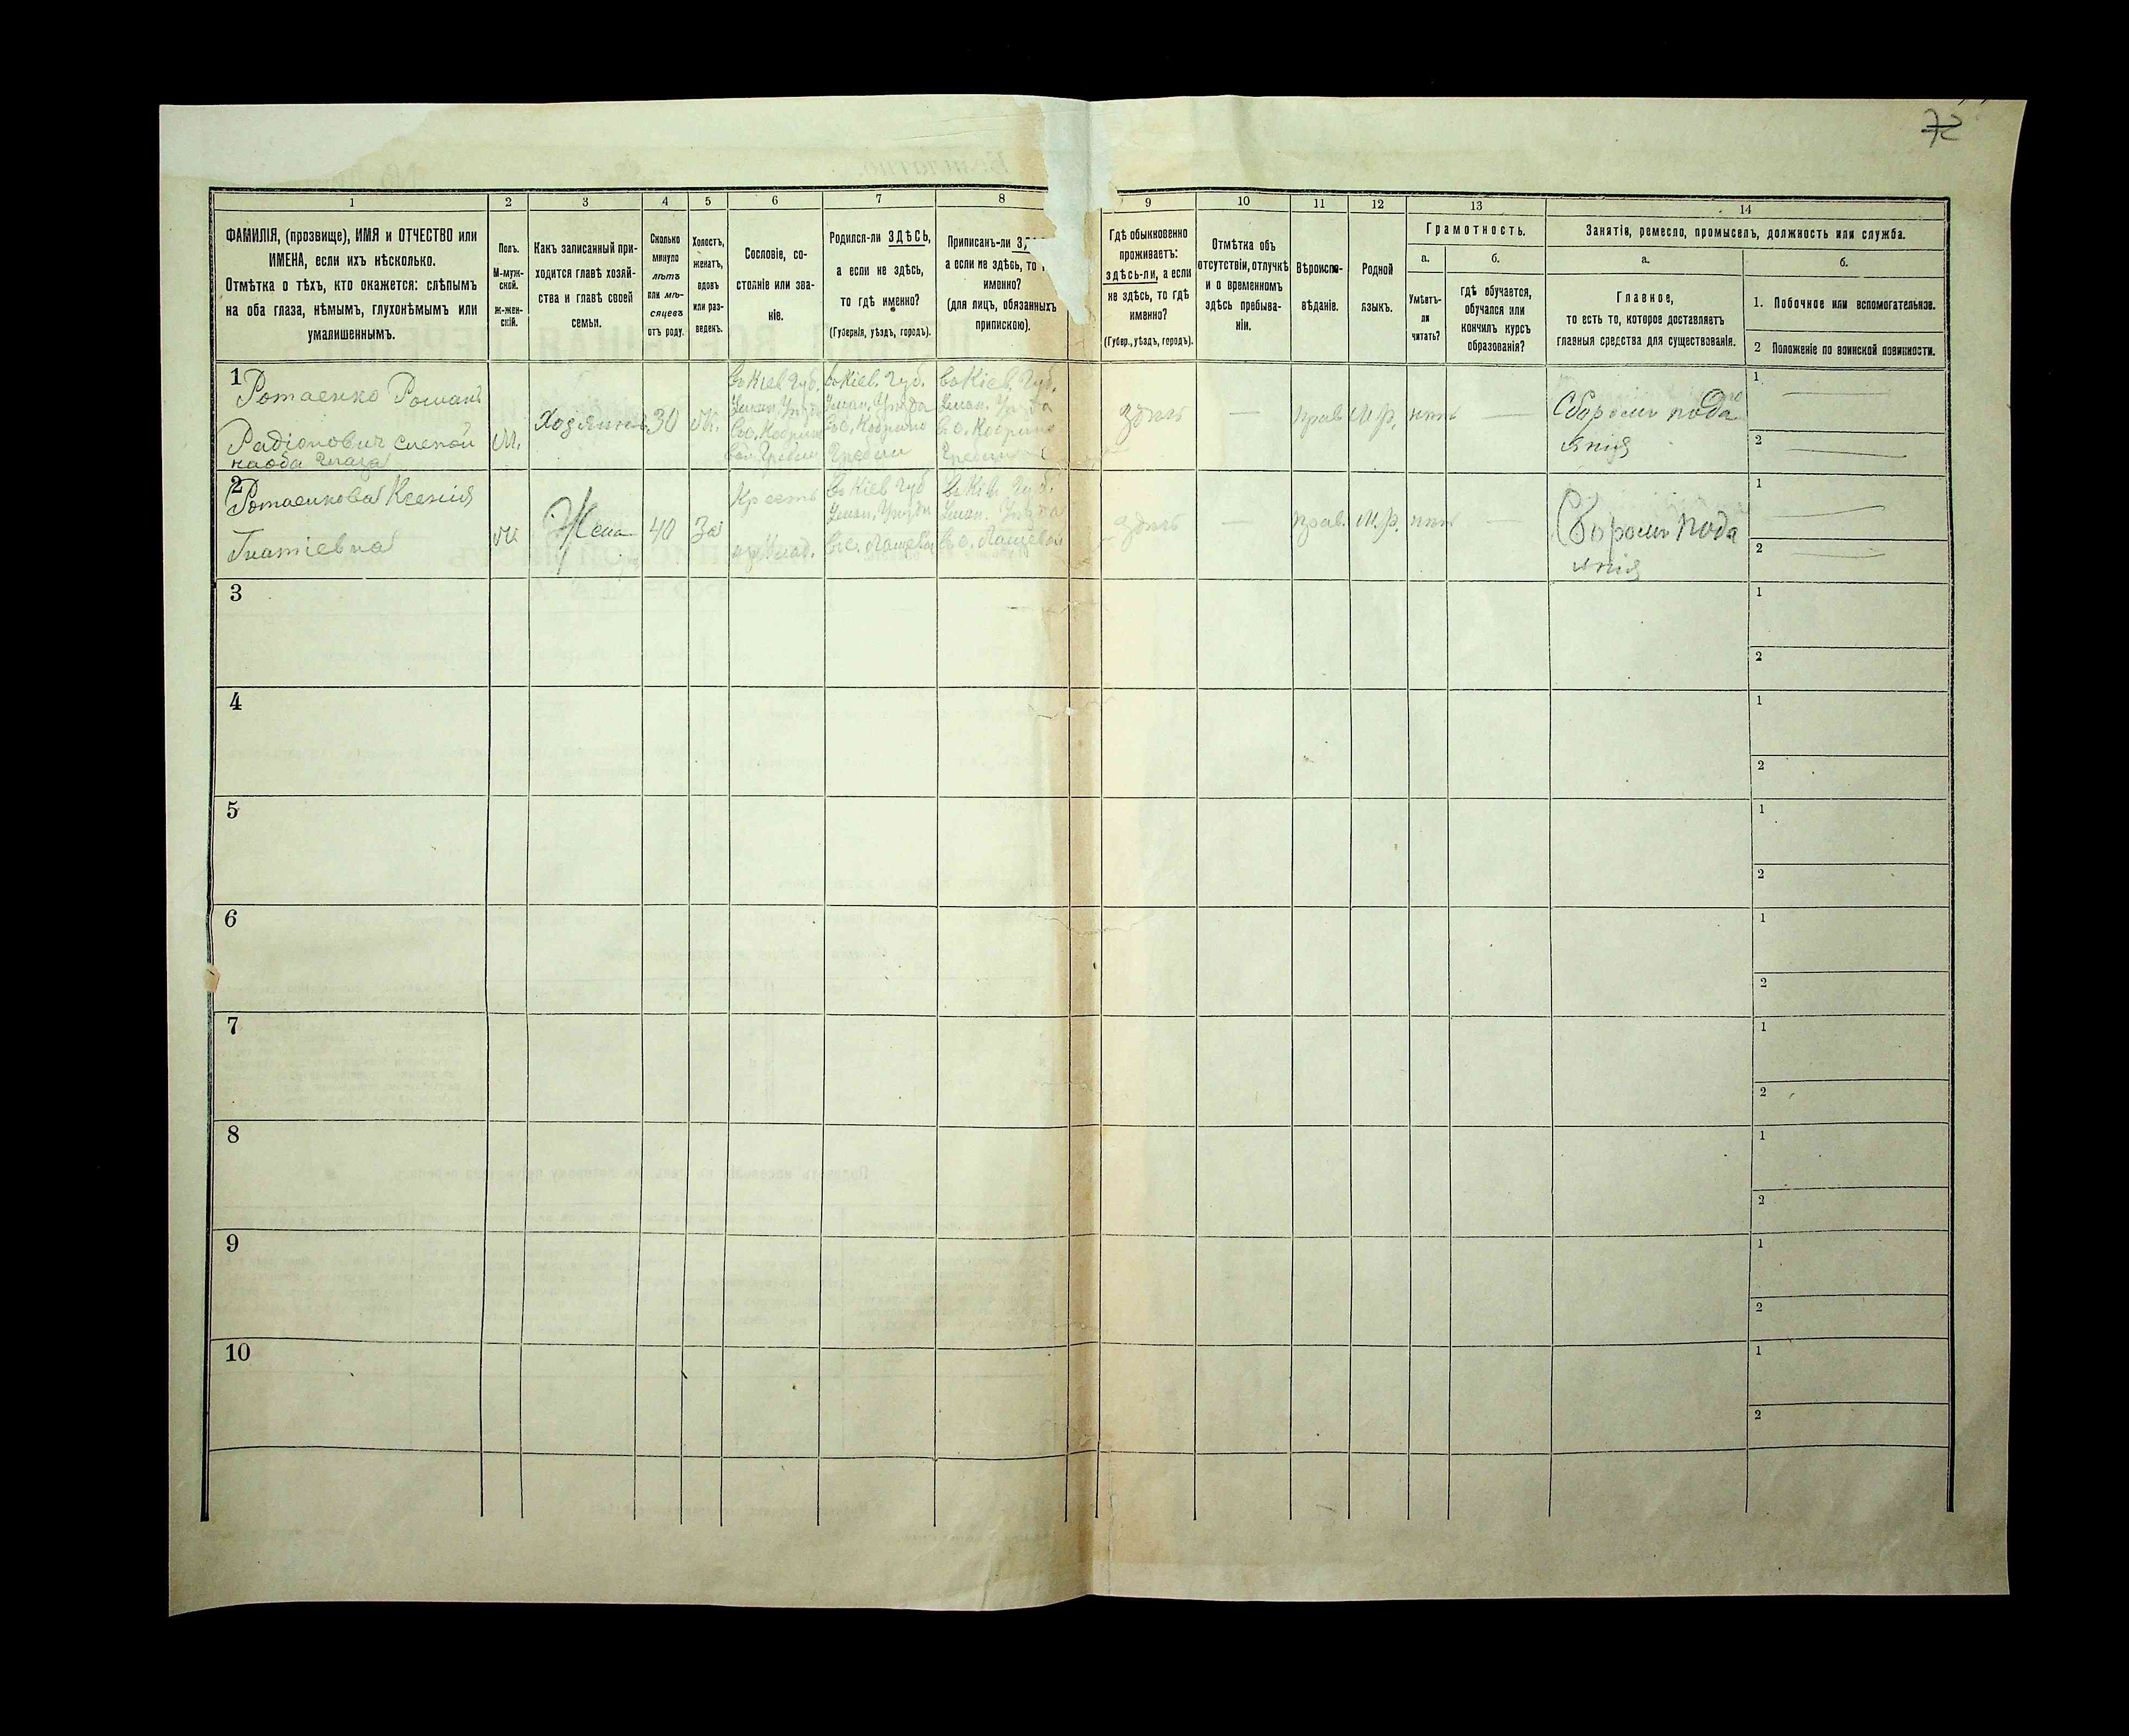 72
1 2 3 4 5 6 7 8 9 10 11 12 13 14
ФАМИЛІЯ, (прозвище), ИМЯ и ОТЧЕСТВО или
ИМЕНА, если ихъ нѣсколько.
Отмѣтка о тѣхъ, кто окажется: слѣпымъ
на оба глаза, нѣмымъ, глухонѣмымъ или
умалишеннымъ.
Полъ.
М-муж-
ской.
Ж-жен-
скій.
Какъ записанный при-
ходится главѣ хозяй-
ства и главѣ своей
семьи.
Сколько
минуло
лѣтъ
или мѣ-
сяцевъ
отъ роду.
Холостъ,
женатъ,
вдовъ
или раз-
веденъ.
Сословіе, со-
стояніе или зва-
ніе.
Родился-ли ЗДѢСЬ,
а если не здѣсь,
то гдѣ именно?
(Губернія, уѣздъ, городъ).
Приписанъ-ли
а если не здѣсь, то
именно?
(для лицъ, обязанныхъ
припискою).
Гдѣ обыкновенно
проживаетъ:
здѣсь-ли, а если
не здѣсь, то гдѣ
именно?
(Губер., уѣздъ, городъ).
Отмѣтка объ
отсутствіи, отлучкѣ
и о временномъ
здѣсь пребыва-
ніи.
Вѣроиспо-
вѣданіе.
Родной
языкъ.
Грамотность.
а.
Умѣетъ-
ли
читать?
б.
гдѣ обучается,
обучался или
кончилъ курсъ
образованія?
Занятія, ремесло, промыселъ, должность или служба.
а.
Главное,
то есть то, которое доставляетъ
главныя средства для существованія.
б.
1. Побочное или вспомогательное.
2 Положеніе по воинской повинности.
1
Ротаенко Романъ
Радіонович слепой
на оба глаза
М.
Хозяинъ
30
Ж.
Во Кіев. Губ.
Уман. Уезда
Во Кіев. Губ.
Уман. Уезда
Во Кіев. Губ.
Уман. Уезда
здесь
—
прав
М.р.
нетъ
—
Сборомъ пода
янія
1
2
2
Ротаенкова Ксенія
Гнатіевна
Ж
Жена
40
За
Крест
Во Кіев Губ
Уман. Уезда
Во Кіев. Губ.
Уман. Уезда
здесь
—
прав.
М.р.
нетъ
—
Сборомъ пода
янія
1
2
3
1
2
4
1
2
5
1
2
6
1
2
7
1
2
8
1
2
9
1
2
10
1
2